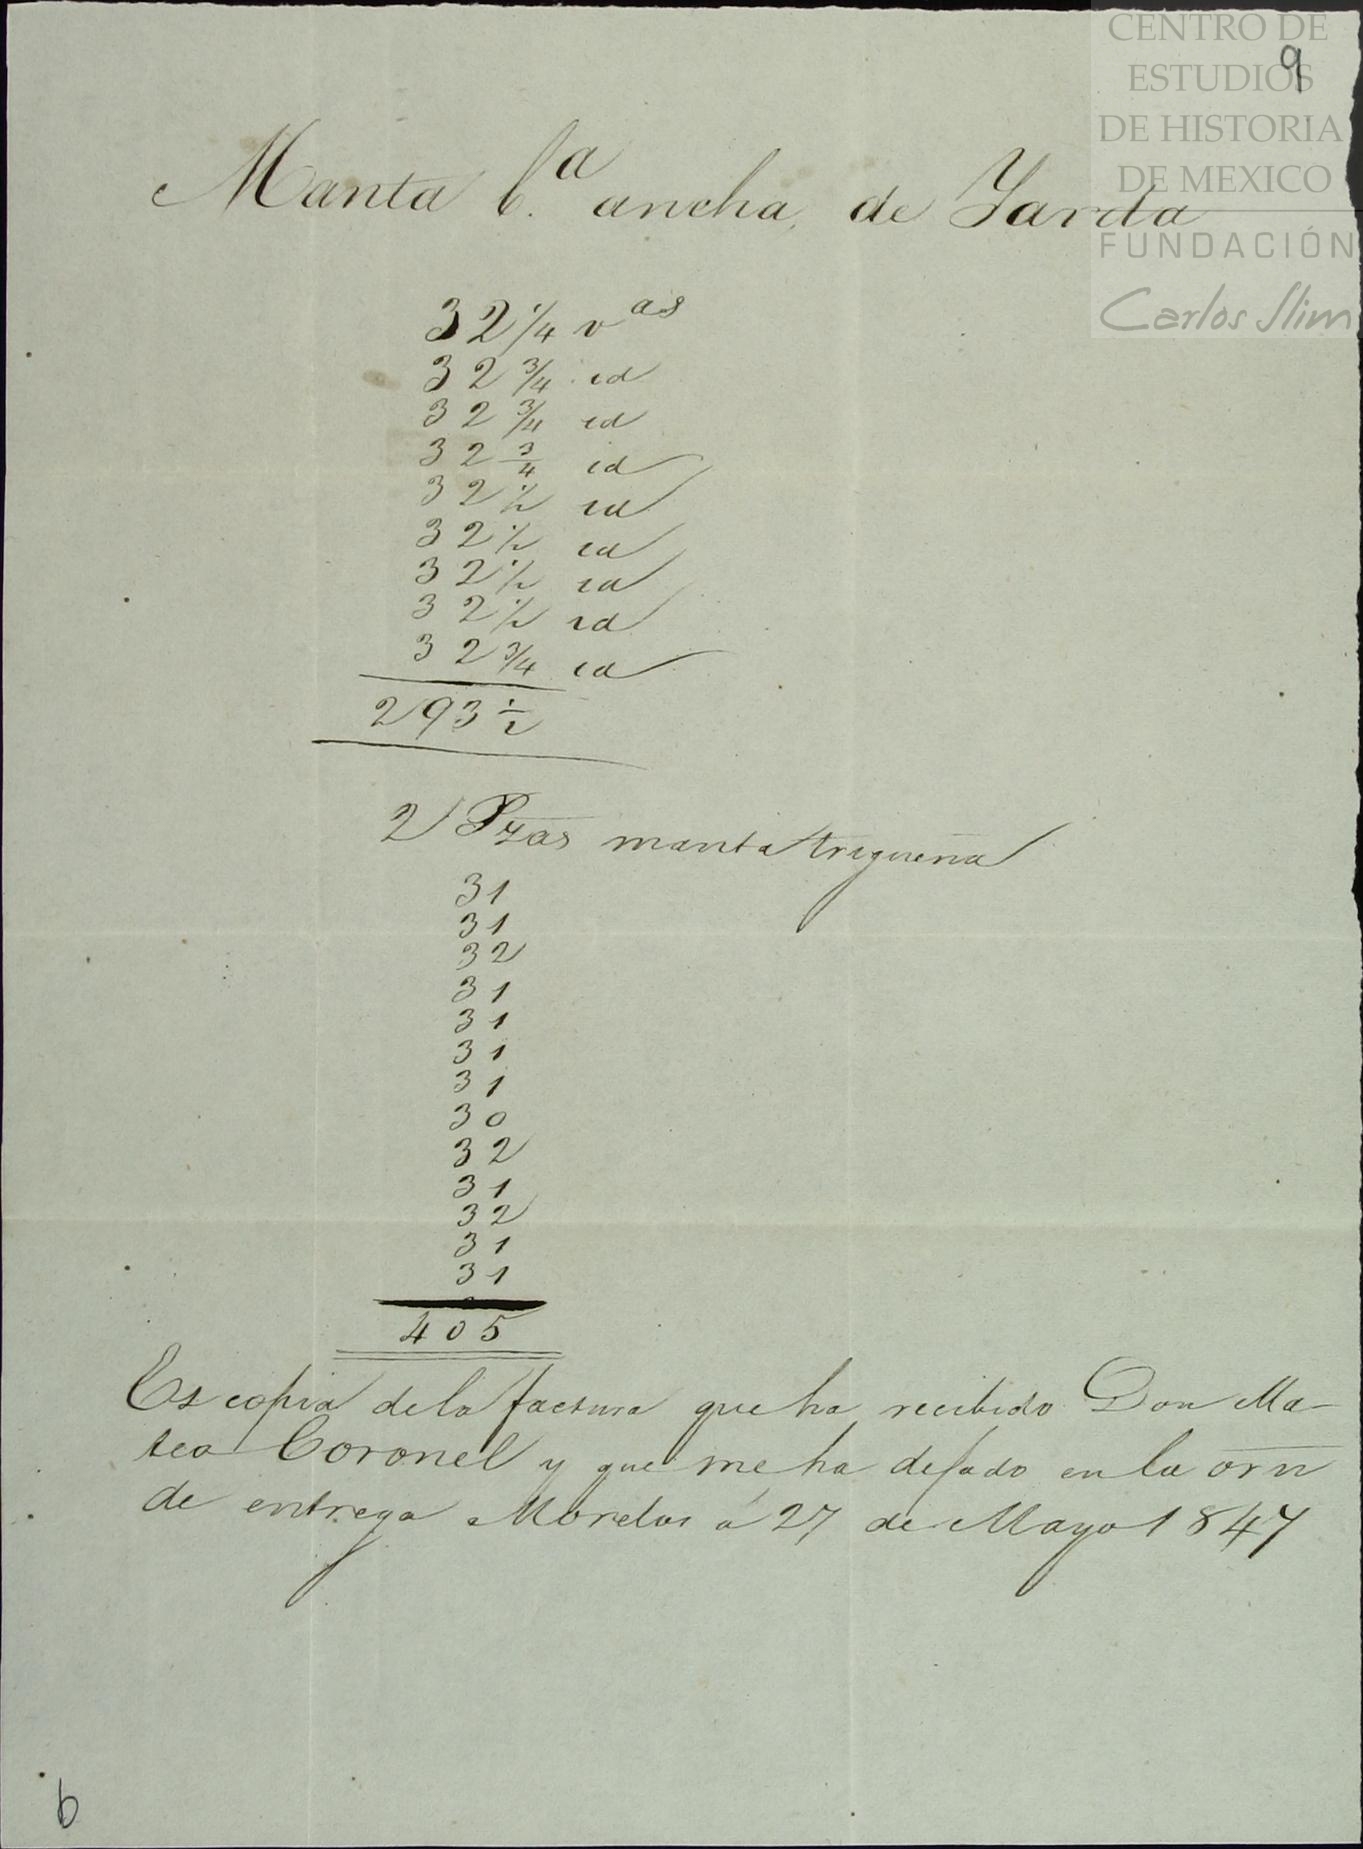 CENTRO DE
ESTUDIOS
DE HISTORIA
DE MEXICO
FUNDACIÓN
Carlos Slim
9
Manta b.ª ancha, de Yarda
32 1/4 vas
32 3/4 id
32 3/4 id
32 3/4 id
32 1/2 id
32 1/2 id
32 1/2 id
32 1/2 id
32 3/4 id
293 1/2
2 Pzas manta trigueña
31
31
32
31
31
31
31
30
32
31
32
31
31
405
Es copia de la factura que ha recibido Don Ma-
teo Coronel y que me ha dejado en la orn
de entrega Morelos á 27 de Mayo 1847
6